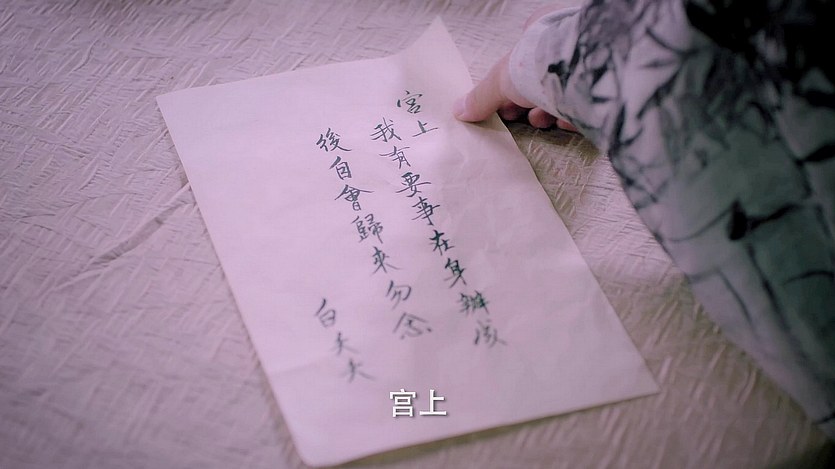 宫上
我有要事在身辦成
後自會歸來勿念
白夭夭
宫上